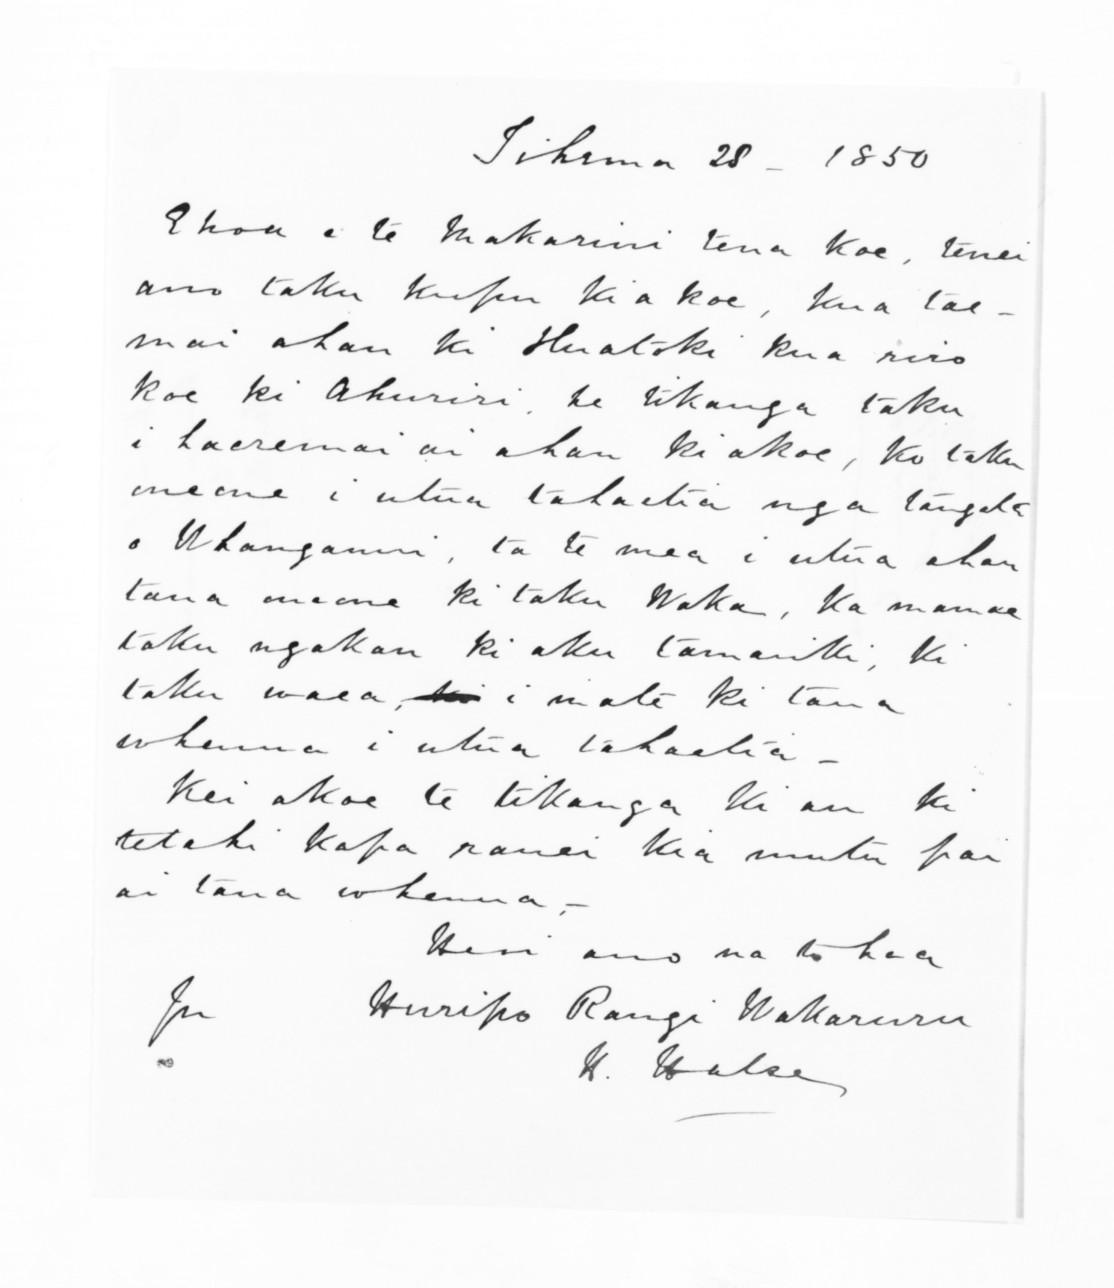 Tihema 28 - 1850
E hoa e te Makarini tena koe, tenei
ano taku kupu ki a koe, kua tae -
mai ahau ki Huatoki kua riro
koe ki Ahuriri, he tikanga taku
i haeremai ai ahau ki akoe, ko taku
oneone i utua tahaetia nga tangata
o Whanganui, ta te mea i utua ahau
tana oneone ki taku Waka, ka mamae
taku ngakau ki aku tamariki, ki
taku waea, i mate ki tana
whenua i utua tahaetia -
Kei akoe te tikanga ki au ki
tetahi kapa ranei kia mutu pai
ai tana whenua, -
Heoi ano na to hoa
Huripo Rangi Wakaruru
H. Halse